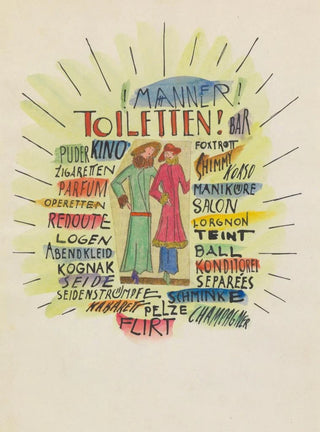 ! MÄNNER!
TOILETTEN! BAR
PUDER KINO
ZIGARETTEN
PARFUM
OPERETTEN
REDOUTE
LOGEN
ABENDKLEID
KOGNAK
SEIDE
SEIDENSTRÜMPFE
FOXTROTT
SHIMMY KORSO
MANIKÜRE
SALON
LORGNON
TEINT
BALL
KONDITOREI
SEPAREES
SCHMINKE
KABARETT PELZE CHAMPAGNER
FLIRT